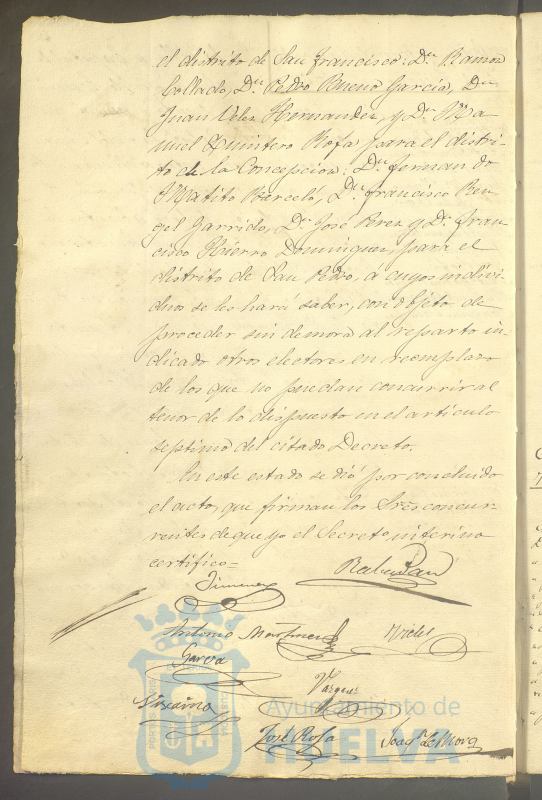 el distrito de San Francisco: Dn. Ramon
Collado, Dn. Pedro Bueno Garcia, Dn
Juan Velez Hernandez, y Dn. Ma-
nuel Quintero Rofa para el distri-
to de la Concepcion: Dn. Fernando
Matito Barceló, Dn. Francisco Ren-
gel Garrido, Dn. José Perez y Dn. Fran-
cisco Hierro Dominguez, para el
distrito de San Pedro, a cuyos indivi-
duos se les hará saber, con objeto de
proceder sin demora al reparto in-
dicado otros electores en reemplazo
de los que no puedan concurrir al
tenor de lo dispuesto en el articulo
septimo del citado Decreto.
En este estado se dió por concluido
el acto, que firman los Sres concur-
rentes de que yo el Secreto. interino
certifico=
Jimenez
Antonio Martinez
Garcia
Vazquez
Vizcaino
José Rofa
Joaqn.
Ayuntamiento de
HUELVA